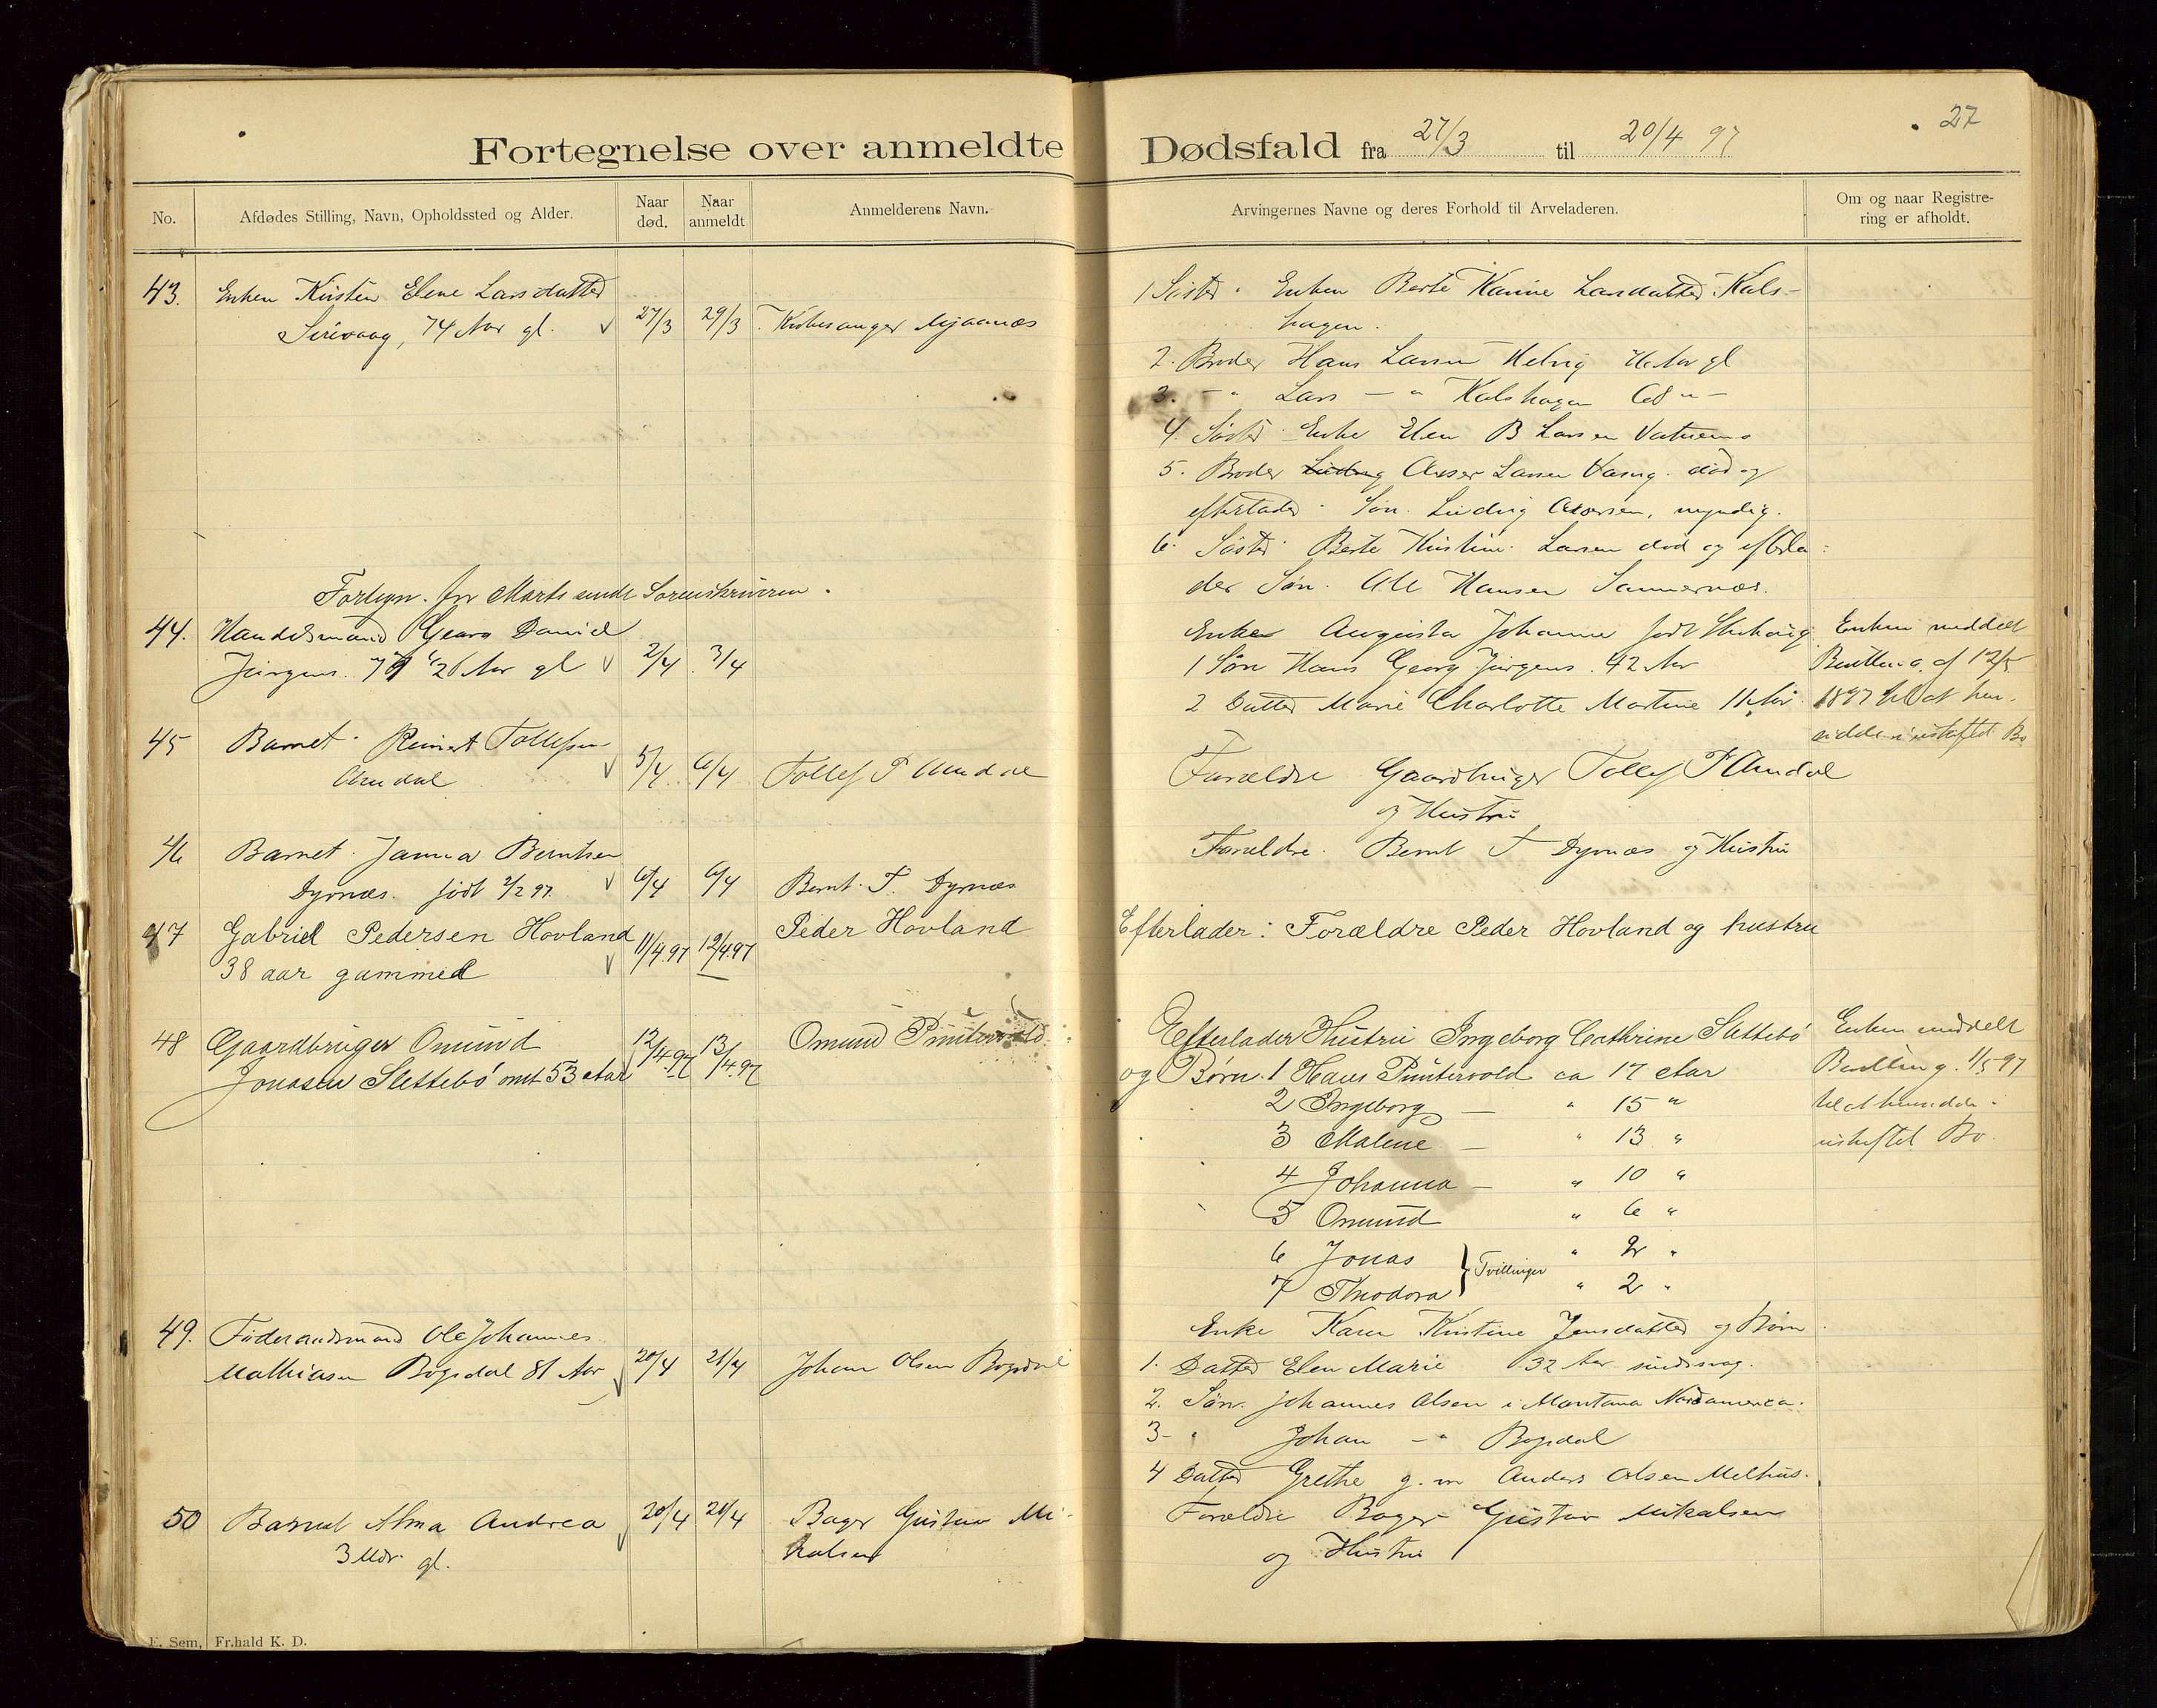 27
Fortegnelse over anmeldte Dødsfald fra 27/3 til 20/4 97
No.
Afdødes Stilling, Navn, Opholdssted og Alder.
Naar død.
Naar anmeldt
Anmelderens Navn.
Arvingernes Navne og deres Forhold til Arveladeren.
Om og naar Registre-
ring er afholdt.
43. Enken Kirsten Elene Larsdatter
Sirevaag, 74 Aar gl. 27/3 29/3 Kirkesanger Mjaanæs
1 Søster Enken Berte Karine Larsdatter Kals-
hagen.
2. Broder Hans Larsen Helvig Aar gl
3. - " Lars - " Kalshagen 68 " -
4. Søster Enke Elen B Larsen
5. Broder Asser Larsen død og
efterlader Søn. Ludvig Assersen, myndig.
6. Søster Berte Kirstine Larsen død og efterla-
der Søn. Hansen
Fortegn. for Marts sendt Sorenskriveren.
44. Handelsmand Georg Daniel
Jürgens. Aar gl 2/4 3/4
Enke Augusta Johanne født
1 Søn Hans Georg Jürgens. 42 Aar
2 Datter Marie Charlotte Martine
Enken meddelt
Bevilling af 12/5
1897 til at hen-
sidde i uskiftet Bo
45 Barnet Reinert Tollefsen
Aarudal 5/4 6/4 Tollef T
Forældre Gaardbruger Tollef T
og Hustru
46 Barnet Janna Berntsen
Dyrnæs. født 2/2 97. 6/4 6/4 Bernt T. Dyrnæs
Forældre. Bernt T Dyrnæs og Hustru
47 Gabriel Pedersen Hovland
38 aar gammel 11/4 97 12/4 97 Peder Hovland
Efterlader: Forældre Peder Hovland og hustru
48 Gaardbruger Omund
Jonasen Slettebö omt 53 Aar 12/4 97 13/4 97 Omund Puntervold
Efterlader Hustru Ingeborg Cathrine Slettebö
og Børn 1 Hans Puntervold ca 17 Aar
2 Ingeborg — " 15 "
3 Malene — " 13 "
4 Johanna — " 10 "
5 Omund " 6 "
6 Jonas " 2 "
7 Theodora } Tvillinger " 2 "
Enken meddelt
Bevilling 1/5 97
til at hensidde i
uskiftet Bo.
49. Föderaadsmand Ole Johannes
Mathiasen Bøgsdal 81 Aar 20/4 21/4 Johan Olsen
Enke Karen Kirstine Jensdatter og Børn
1. Datter Elen Marie 32 Aar sindssvag.
2. Søn. Johannes Olsen i Montana Nordamerica.
3 - " Johan - "
4 Datter Grethe g. m Anders Olsen Melhus.
50 Barnet Alma Andrea
3 Mdr. gl. 20/4 21/4 Bager Gustav Mi-
kalsen
Forældre Bager Gustav Mikalsen
og Hustru
E. Sem, Fr.hald K. D.